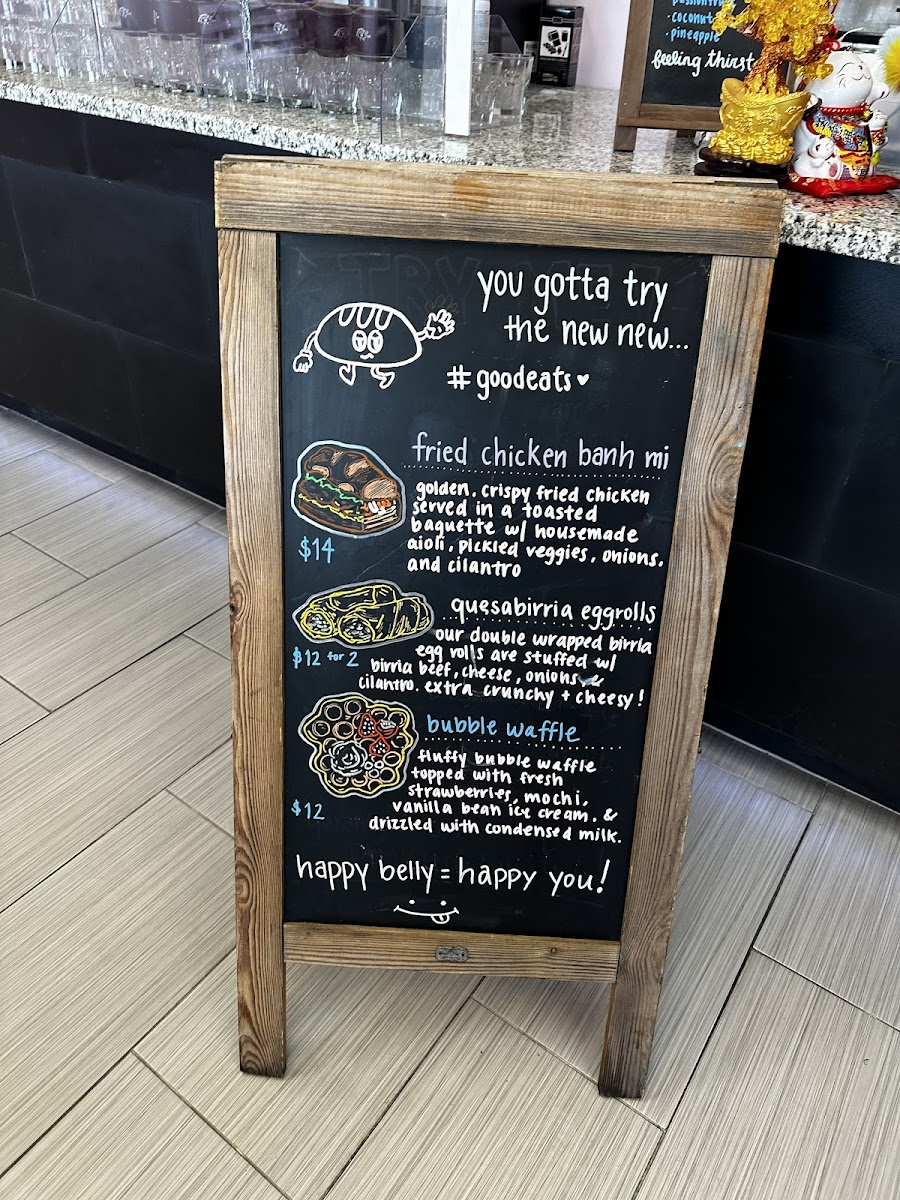 · coconut
· pineapple
feeling
you gotta try
the new new...
#goodeats
fried chicken banh mi
golden, crispy fried chicken
served in a toasted
baguette w/ housemade
aioli, pickled veggies, onions,
and cilantro
$14
quesabirria eggrolls
our double wrapped birria
egg rolls are stuffed w/
birria beef, cheese, onions &
cilantro. extra crunchy + cheesy!
$12 for 2
bubble waffle
fluffy bubble waffle
topped with fresh
strawberries, mochi,
vanilla bean ice cream, &
drizzled with condensed milk.
$12
happy belly = happy you!